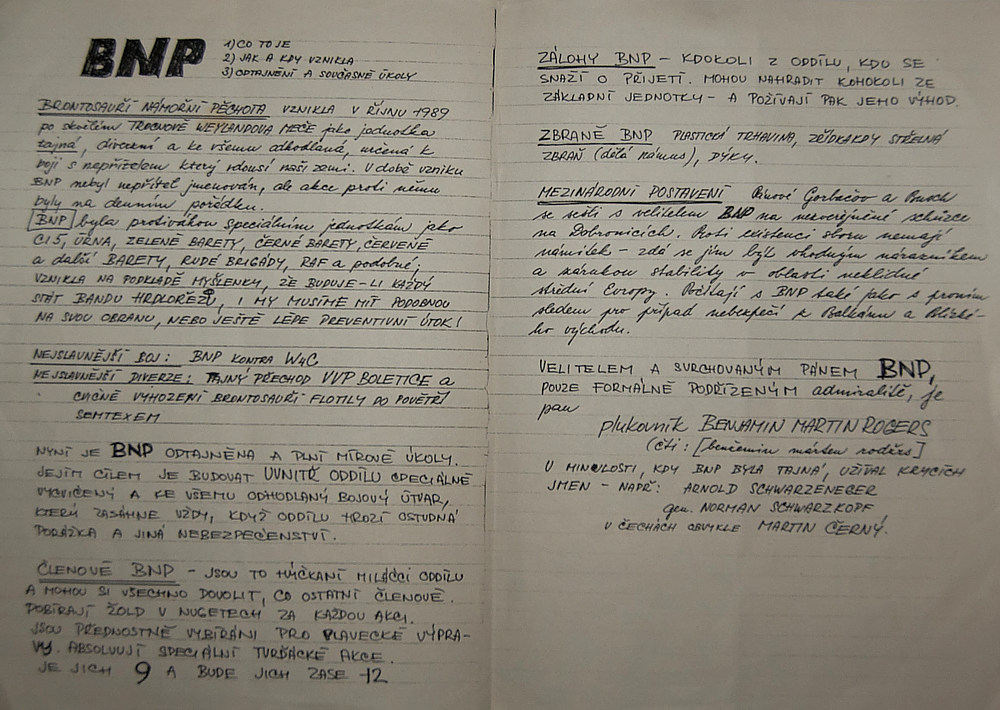 BNP
1) CO TO JE
2) JAK A KDY VZNIKLA
3) ODTAJNĚNÍ A SOUČASNÉ ÚKOLY
BRONTOSAUŘÍ NÁMOŘNÍ PĚCHOTA VZNIKLA V ŘÍJNU 1989
po skvělém TROCNOVĚ WEYLANDOVA MEČE jako jednotka
tajná, diverzní a ke všemu odhodlaná, určená k
boji s nepřítelem který rdousí naši zemi. V době vzniku
BNP nebyl nepřítel jmenován, ale akce proti němu
byly na denním pořádku.
BNP byla protiváhou speciálním jednotkám jako
CI5, ÚRNA, ZELENÉ BARETY, ČERNÉ BARETY, ČERVENÉ
a další BARETY, RUDÉ BRIGÁDY, RAF a podobně;
VZNIKLA NA PODKLADĚ MYŠLENKY, ŽE BUDUJE-LI KAŽDÝ
STÁT BANDU HRDLOŘEZŮ, I MY MUSÍME MÍT PODOBNOU
NA SVOU OBRANU, NEBO JEŠTĚ LÉPE PREVENTIVNÍ ÚTOK!
NEJSLAVNĚJŠÍ BOJ: BNP KONTRA W4C
NEJSLAVNĚJŠÍ DIVERZE: TAJNÝ PŘECHOD VVP BOLETICE a
CVIČNÉ VYHOZENÍ BRONTOSAUŘÍ FLOTILY DO POVĚTŘÍ
SEMTEXEM
NYNÍ JE BNP ODTAJNĚNA A PLNÍ MÍROVÉ ÚKOLY.
JEJÍM CÍLEM JE BUDOVAT UVNITŘ ODDÍLU SPECIÁLNĚ
VYCVIČENÝ A KE VŠEMU ODHODLANÝ BOJOVÝ ÚTVAR,
KTERÝ ZASÁHNE VŽDY, KDYŽ ODDÍLU HROZÍ OSTUDNÁ
PORÁŽKA A JINÁ NEBEZPEČENSTVÍ.
ČLENOVÉ BNP - JSOU TO HÝČKANÍ MILÁČCI ODDÍLU
A MOHOU SI VŠECHNO DOVOLIT, CO OSTATNÍ ČLENOVÉ.
POBÍRAJÍ ŽOLD V NUGETECH ZA KAŽDOU AKCI.
JSOU PŘEDNOSTNĚ VYBÍRÁNI PRO PLAVECKÉ VÝPRA-
VY. ABSOLVUJÍ SPECIÁLNÍ TURŠŤÁCKÉ AKCE.
JE JICH 9 A BUDE JICH ZASE 12
ZÁLOHY BNP - KDOKOLI Z ODDÍLU, KDO SE
SNAŽÍ O PŘIJETÍ. MOHOU NAHRADIT KOHOKOLI ZE
ZÁKLADNÍ JEDNOTKY - A POŽÍVAJÍ PAK JEHO VÝHOD.
ZBRANĚ BNP PLASTICKÁ TRHAVINA, ZŘÍDKAKDY STŘELNÁ
ZBRAŇ (dělá rámus), DÝKY.
MEZINÁRODNÍ POSTAVENÍ Pánové Gorbačov a Busch
se sešli s velitelem BNP na neveřejné schůzce
na Dobronicích. Proti existenci sboru nemají
námitek - zdá se jim být vhodným nárazníkem
a zárukou stability v oblasti neklidné
střední Evropy. Počítají s BNP také jako s prvním
sledem pro případ nebezpečí z Balkánu a Blízké-
ho východu.
VELITELEM A SVRCHOVANÝM PÁNEM BNP,
POUZE FORMÁLNĚ PODŘÍZENÝM admiralitě, je
pan
plukovník BENJAMIN MARTIN ROGERS
(čti: [benčemin márten rodžrs]
V MINULOSTI, KDY BNP BYLA TAJNÁ, UŽÍVAL KRYCÍCH
JMEN - NAPŘ: ARNOLD SCHWARZENEGER
gen. NORMAN SCHWARZKOPF
V ČECHÁCH OBVYKLE MARTIN ČERNÝ.